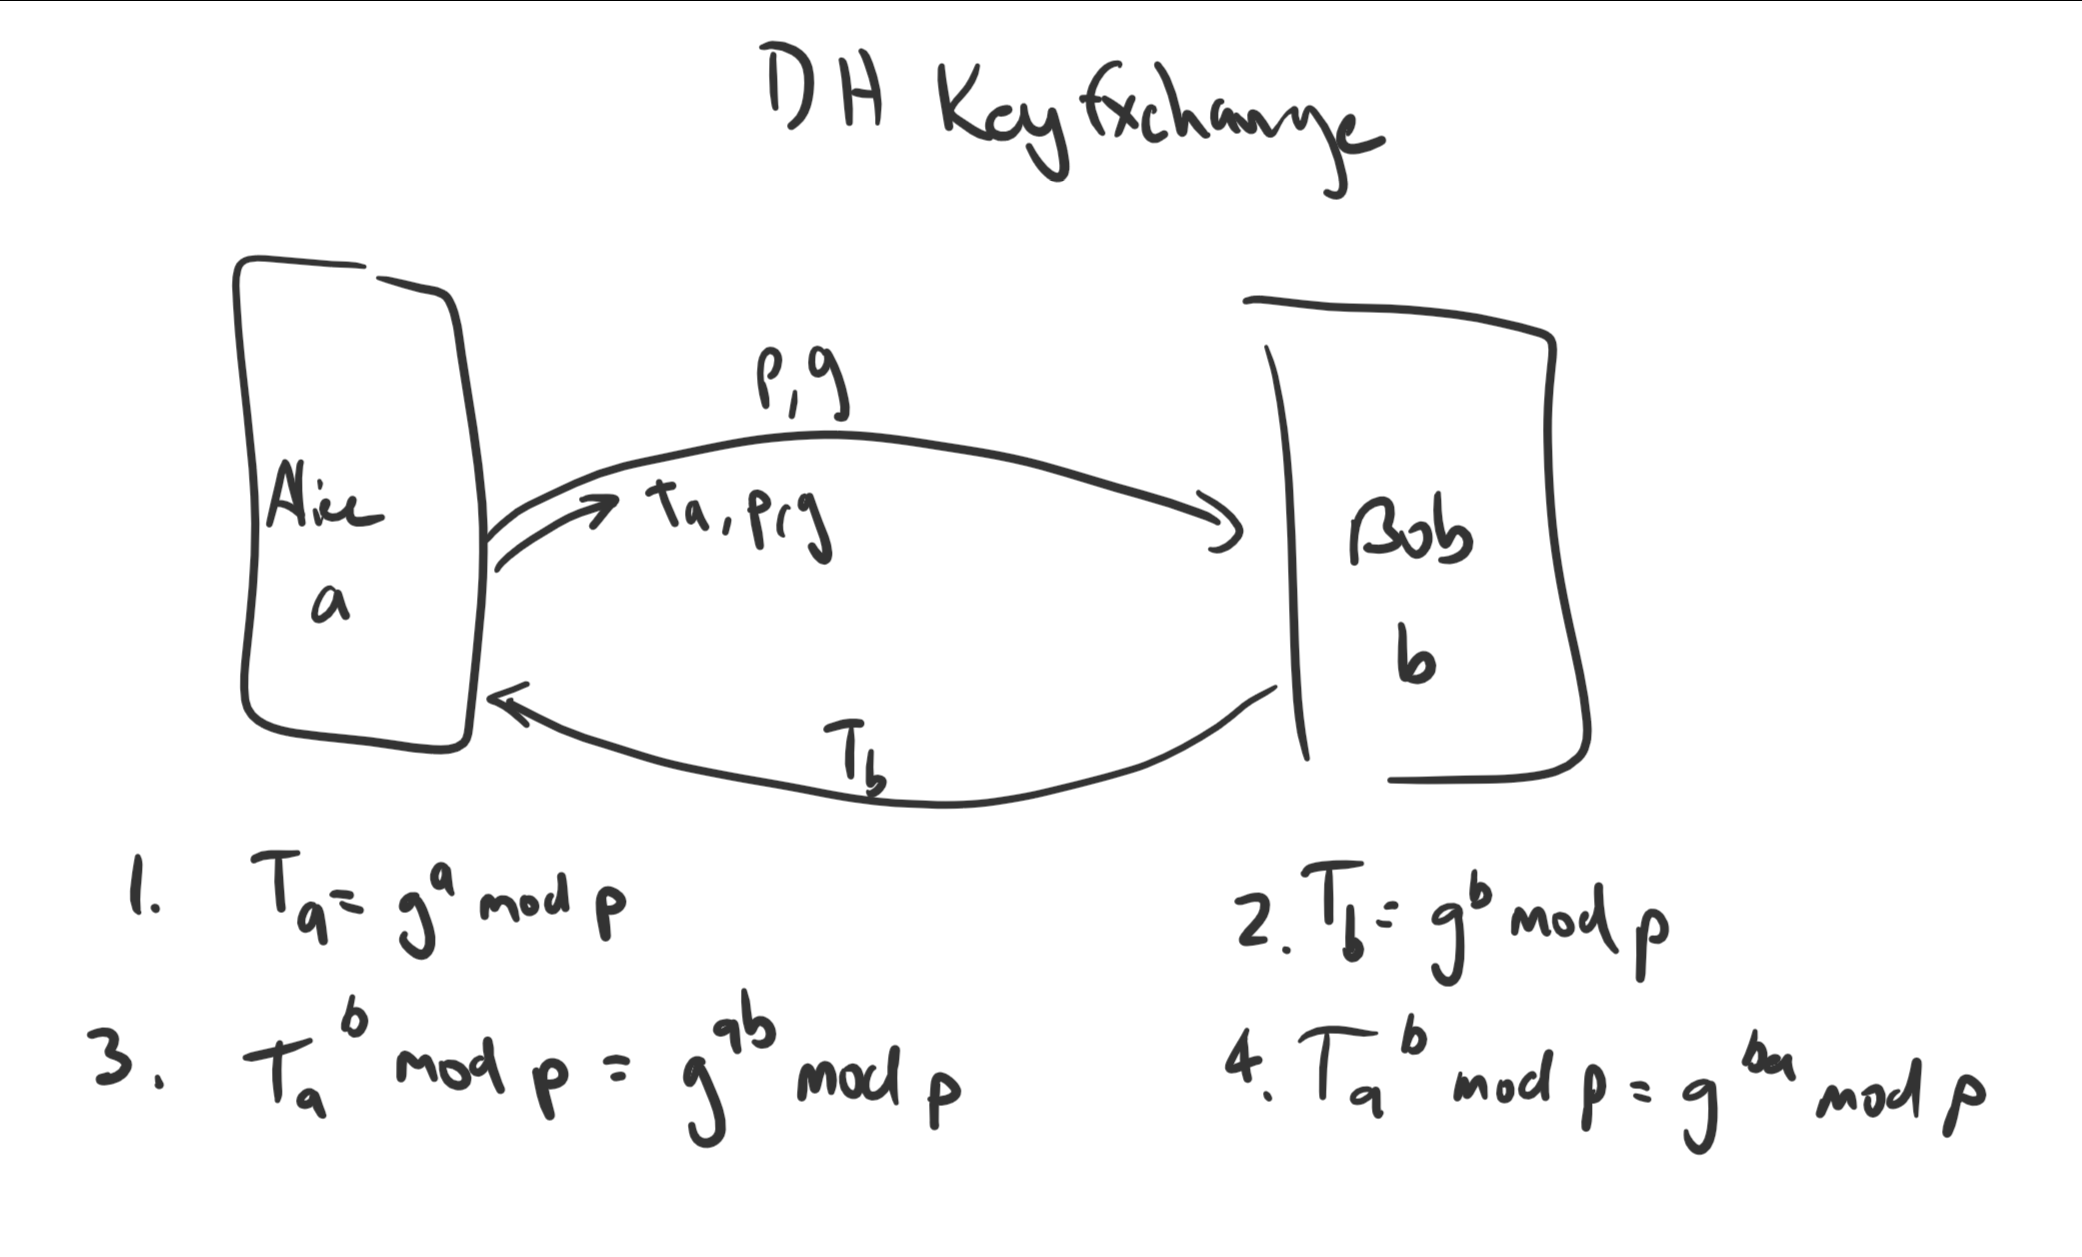 DH Key Exchange
p,g
Ta, p,g
Alice
a
Bob
b
T_b
1. T_a = g^a mod p
2. T_b = g^b mod p
3. T_a^b mod p = g^ab mod p
4. T_a^b mod p = g^ba mod p